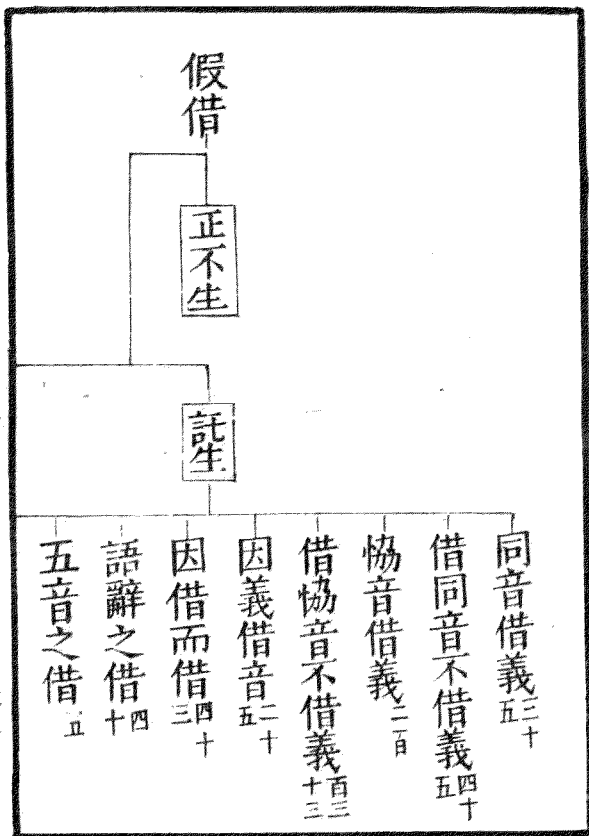 假借
正不生
託生
同音借義三十五
借同音不借義四十五
恊音借義二百
借恊音不借義百三十三
因義借音二十五
因借而借四十三
語辭之借四十
五音之借五